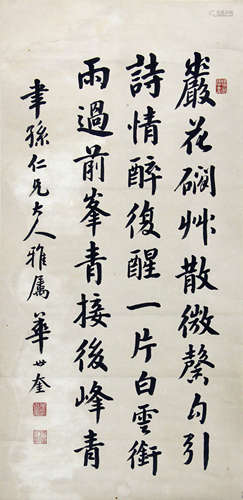 巖花礀艸散微馨勾引
詩情醉復醒一片白雲銜
雨過前峯青接後峰青
聿孫仁兄大人雅屬
華世奎